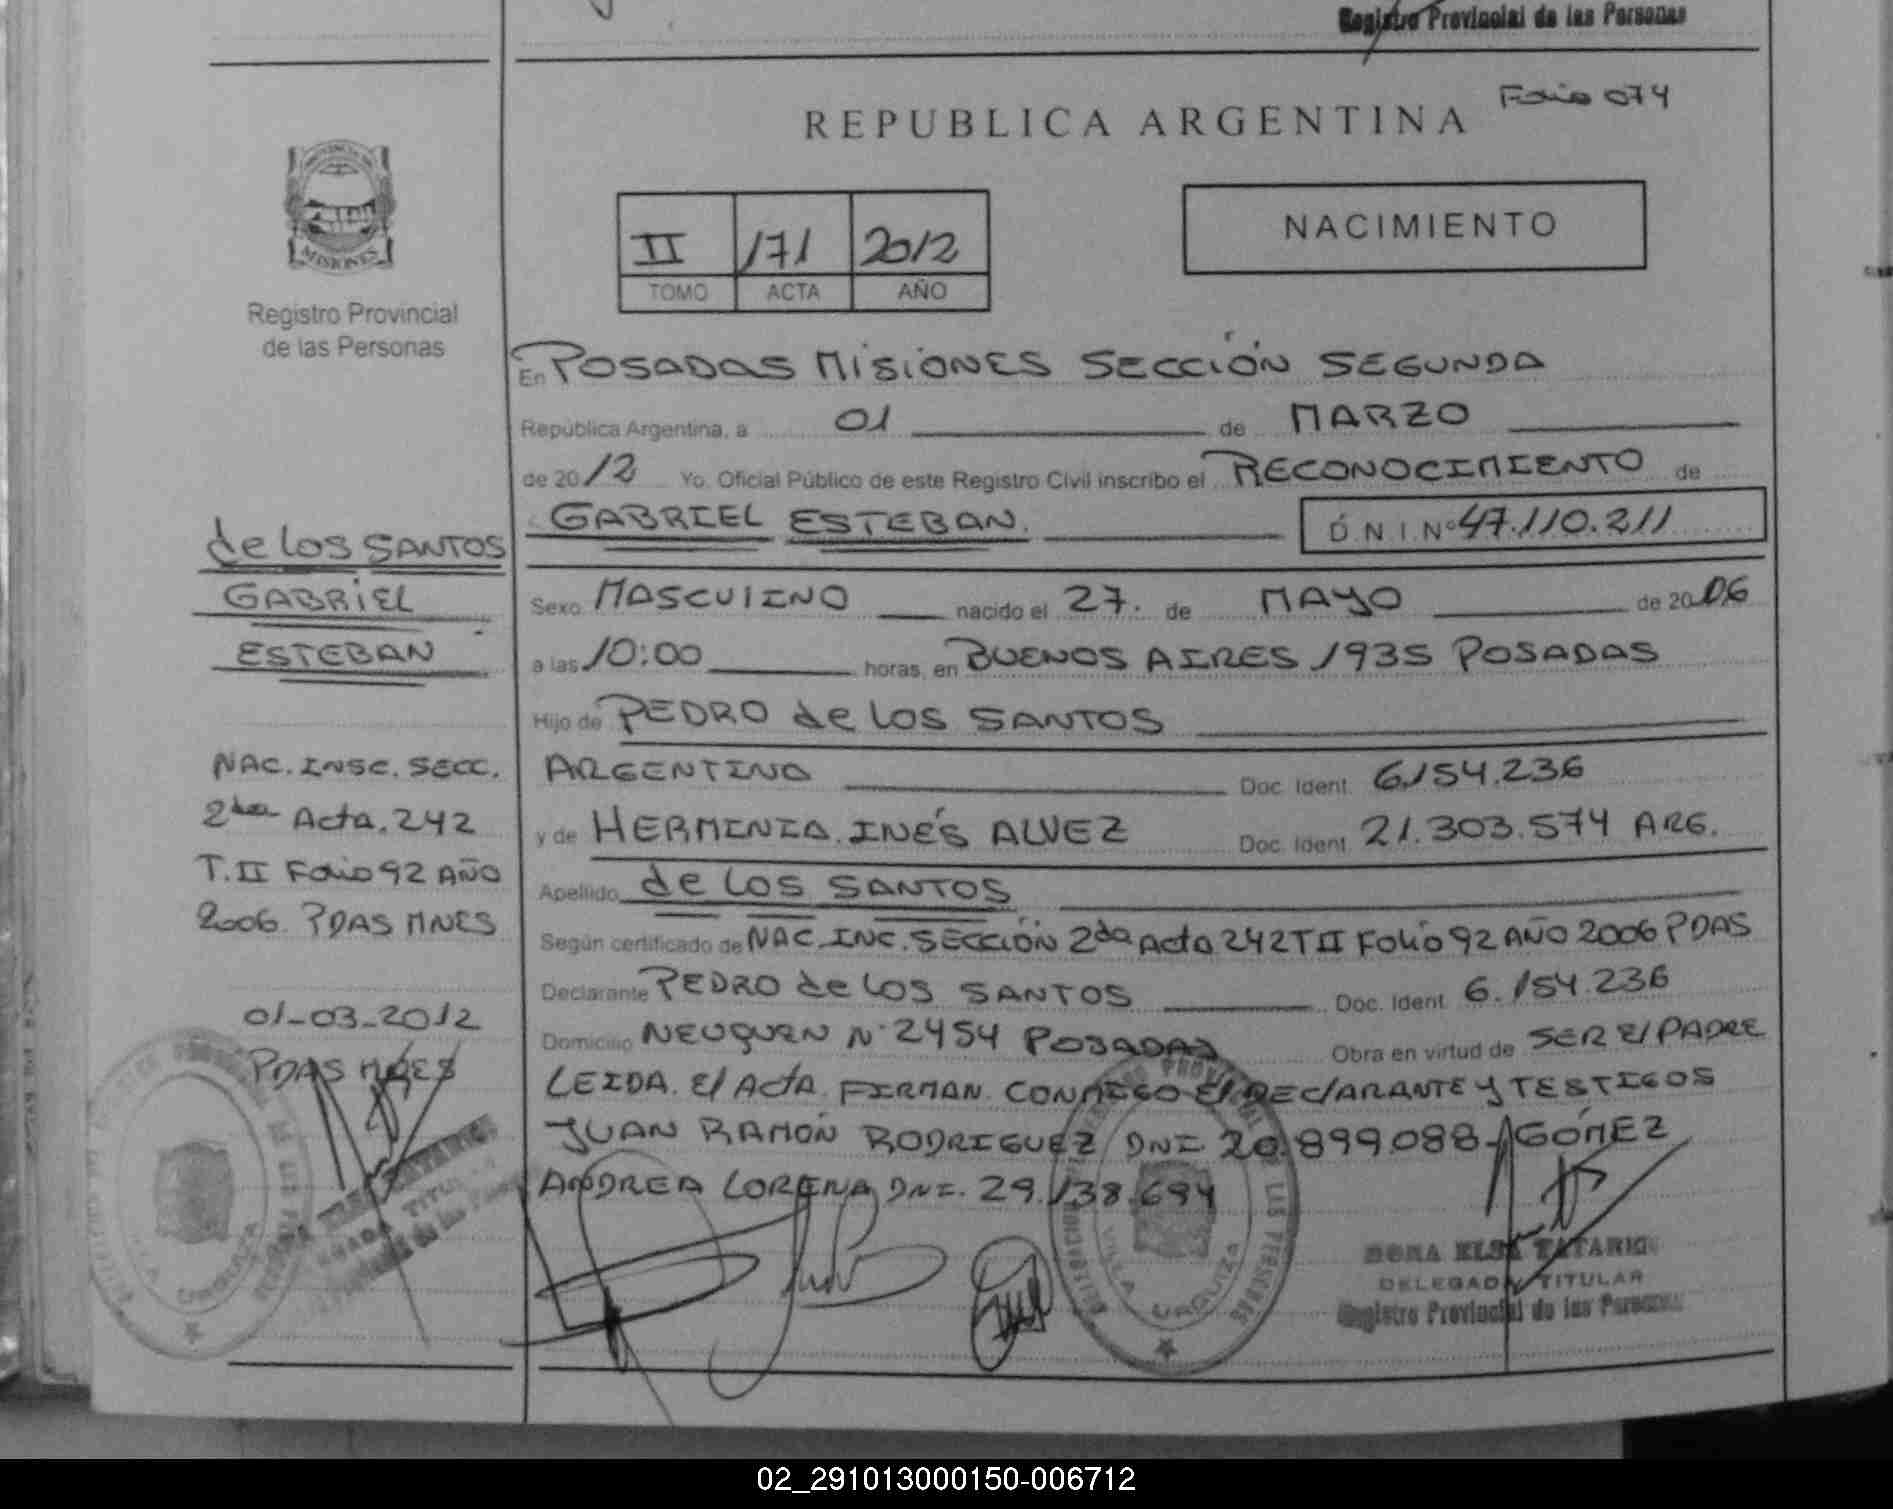 Registro Provincial de las Personas
Folio 074
REPUBLICA ARGENTINA
PROVINCIA DE
MISIONES
Registro Provincial
de las Personas
II 171 2012
TOMO ACTA AÑO
NACIMIENTO
En POSADAS MISIONES SECCIÓN SEGUNDA
República Argentina, a 01 de MARZO
de 2012 Yo, Oficial Público de este Registro Civil inscribo el RECONOCIMIENTO de
GABRIEL ESTEBAN. D.N.I.Nº 47.110.211
Sexo MASCULINO nacido el 27. de MAYO de 2006
a las 10:00 horas, en BUENOS AIRES 1935 POSADAS
Hijo de PEDRO de LOS SANTOS
ARGENTINO Doc. Ident. 6.154.236
y de HERMINIA INÉS ALVEZ Doc. Ident. 21.303.574 ARG.
Apellido de LOS SANTOS
Según certificado de NAC. INC. SECCIÓN 2da Acta 242 T II Folio 92 AÑO 2006 PDAS
Declarante PEDRO de LOS SANTOS Doc. Ident. 6.154.236
Domicilio NEUQUEN Nº 2454 POSADAS Obra en virtud de SER El PADRE
LEIDA. El ACTA FIRMAN CONMIGO El DEClARANTE y TESTIGOS
JUAN RAMÓN RODRIGUEZ DNI 20.899.088 GÓMEZ
ANDREA LORENA DNI. 29.138.694
de LOS SANTOS
GABRIEL
ESTEBAN
NAC. INSC. SECC.
2da Acta. 242
T. II Folio 92 AÑO
2006 PDAS MNES
01-03-2012
PDAS MNES
VILLA URQUIZA
ELSA TATARIN
DELEGADA TITULAR
Registro Provincial de las Personas
02_291013000150-006712